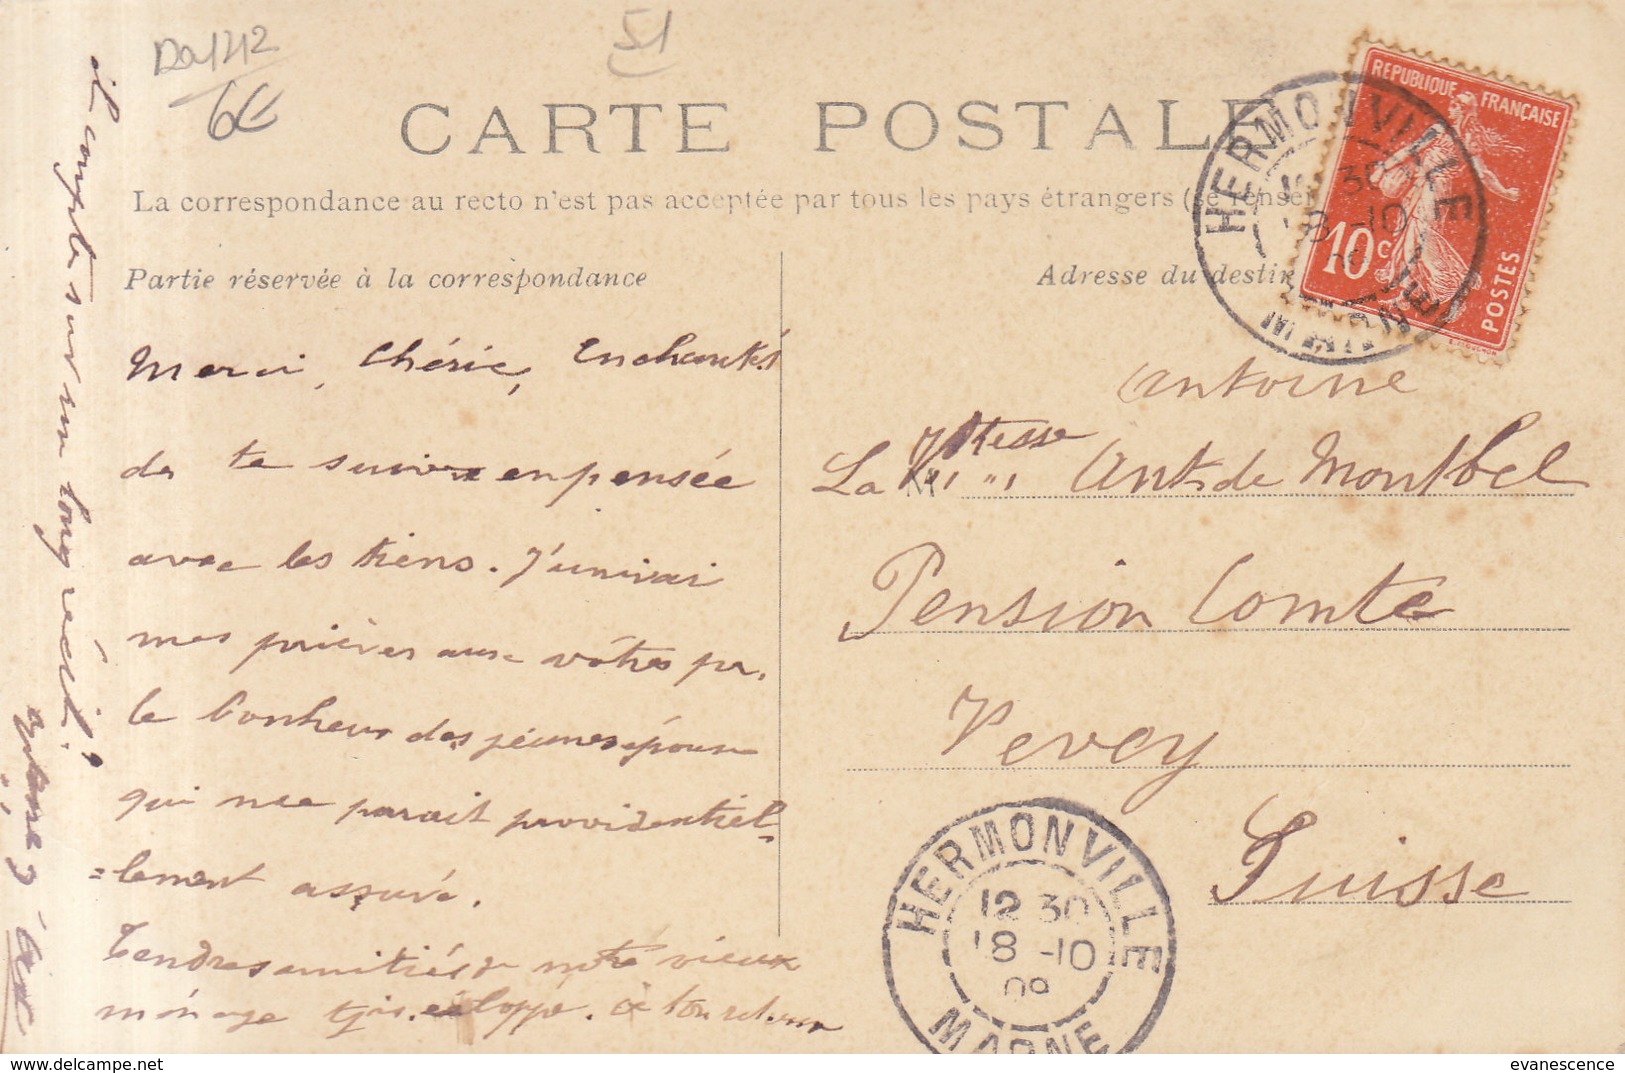 51
6€
CARTE POSTALE
La correspondance au recto n'est pas acceptée par tous les pays étrangers (se renser
Partie réservée à la correspondance
Adresse du destin
REPUBLIQUE FRANÇAISE
10c
POSTES
HERMONVILLE
30
18 -10
Merci, Chérie, Enchantés
de te suivre en pensée
avec les tiens. J'unirai
mes prières aux vôtres pr.
le bonheur des jeunes époux
qui me parait providentiel=
=lement assuré.
Tendres amitiés de notre vieux
ménage tjrs. écloppé. à ton retour
il compte sur un long récit.
Antoine
La Vtesse Ant. de Montbel
Pension Comte
Vevey
Suisse
HERMONVILLE
12 30
18 -10
09
MARNE
evanescence